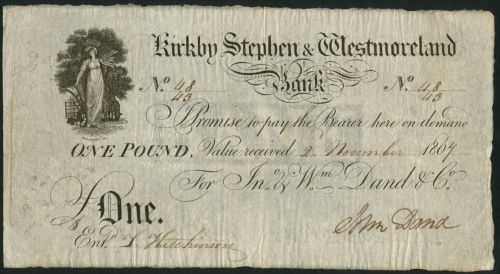 Kirkby Stephen & Westmoreland
Bank
No. 48/43 No. 48/43
I Promise to pay the Bearer here on demand
ONE POUND. Value received 2 November 1804
For Jno. & Wm. Dand & Co.
£ One.
John Dand
Entd. T. Hutchinson